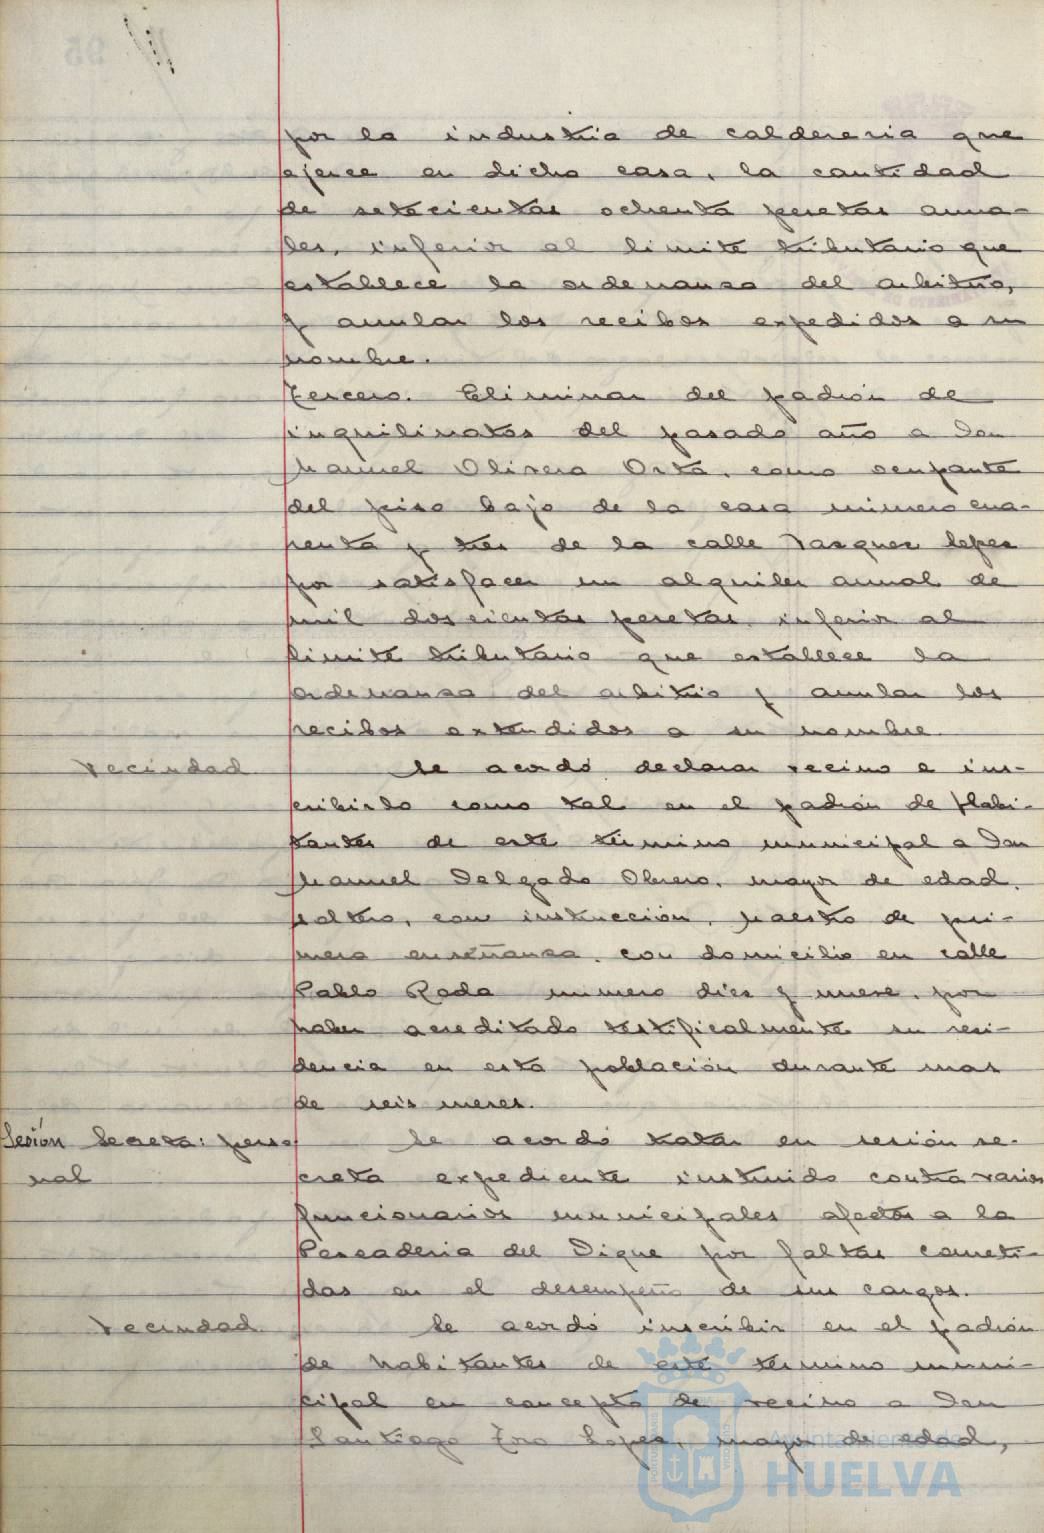 por la industria de caldereria que
ejerce en dicha casa, la cantidad
de setecientas ochenta pesetas anua-
les, inferior al limite tributario que
establece la ordenanza del arbitrio,
y anular los recibos expedidos a su
nombre.
Tercero. Eliminar del padrón de
inquilinatos del pasado año a Don
Manuel Olivera Orta, como ocupante
del piso bajo de la casa número cua-
renta y tres de la calle Vazquez Lopez
por satisfacer un alquiler anual de
mil doscientas pesetas, inferior al
limite tributario que establece la
ordenanza del arbitrio y anular los
recibos extendidos a su nombre.
Vecindad
Se acordó declarar vecino e ins-
cribirlo como tal en el padrón de Habi-
tantes de este término municipal a Don
Manuel Delgado Obrero, mayor de edad,
soltero, con instrucción, Maestro de pri-
mera enseñanza, con domicilio en calle
Pablo Rada numero diez y nueve, por
haber acreditado testificalmente su resi-
dencia en esta población durante mas
de seis meses.
Sesión Secreta: perso
nal
Se acordó tratar en sesión se-
creta expediente instruido contra varios
funcionarios municipales afectos a la
Pescaderia del Dique por faltas cometi-
das en el desempeño de sus cargos.
Vecindad
Se acordó inscribir en el padrón
de habitantes de este término muni-
cipal en concepto de vecino a Don
Santiago Toro Lopez, mayor de edad,
Ayuntamiento de
HUELVA